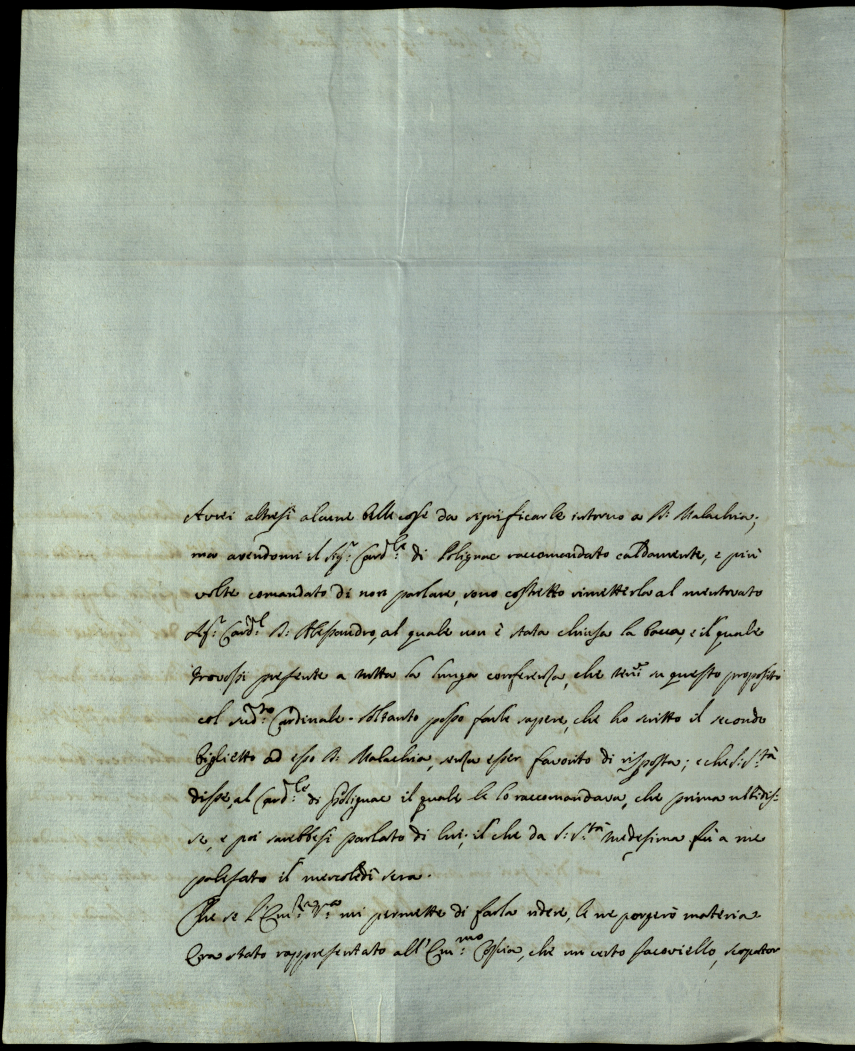 Avrei altresì alcune belle cose da significarle intorno a B: Malachia;
ma avendomi il Sig:r Card:le di Polignac raccomandato caldamente, e più
volte comandato di non parlare, sono costretto rimetterla al mentovato
Sig:r Card:l B: Alessandro, al quale non è stata chiusa la bocca, e il quale
trovossi presente a tutta la lunga conferenza, che su questo proposito
col sud:to Cardinale. Soltanto posso farle sapere, che ho scritto il secondo
biglietto ad esso B: Malachia, senza esser favorito di risposta; e che S: S:tà
disse, al Card:le di Polignac il quale le lo raccomandava, che prima ubbidis-
se, e poi sarebbesi parlato di lui; il che da S: S:tà medesima fù a me
palesato il mercoledì sera.
Che se l'Em:za V:ra mi permette di farla ridere, le ne porgerò materia
Era stato rappresentato all'Em:mo Coscia, che un certo Iacoviello, scopator